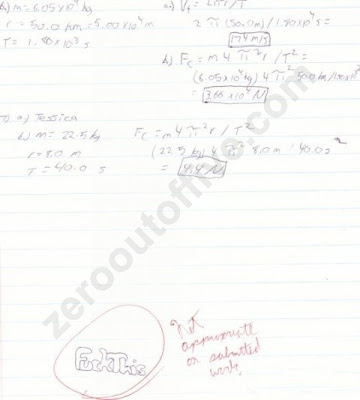 b) m = 6.05 x 10⁴ kg
r = 50.0 km = 5.00 x 10⁴ m
a) V = 2πr/T
2 π (50.0m) / 1.80 x 10⁴ s =
174 m/s
b) Fc = m 4 π² r / T² =
(6.05x10⁴kg) 4 π²
= 3.66 x 10⁴ N
a) Jessica
b) m = 22.5 kg
r = 8.0 m
T = 40.0 s
Fc = m 4 π² r / T²
(22.5 kg) 4 π² 8.0 m / 40.0 s²
= 4.4 N
zerooutoffive.com
FuckThis
Not
appropriate
on submitted
work.